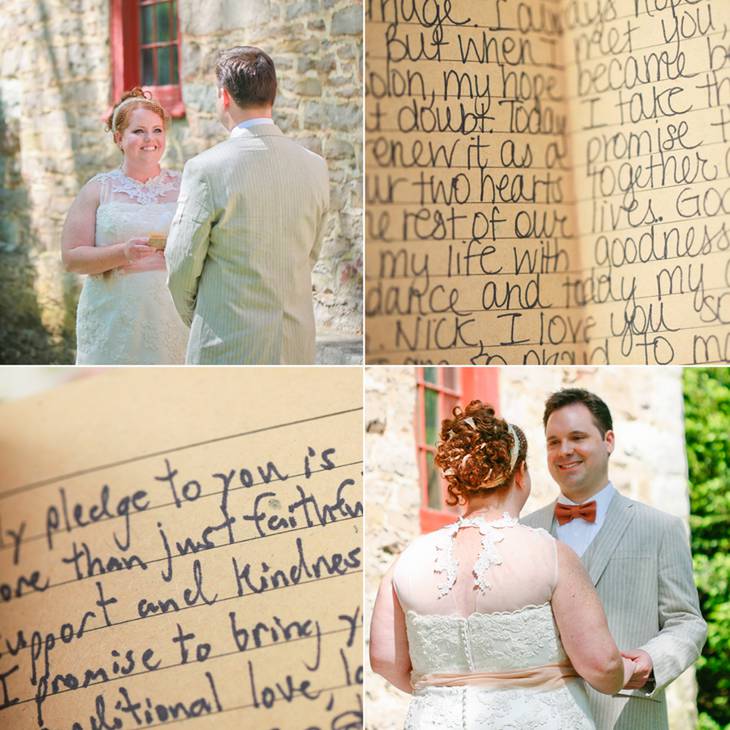 huge. I always hope
But when I meet you,
my hope became b
doubt. Today I take th
renew it as a promise t
our two hearts together
the rest of our lives. God
my life with goodness
dance and today my
Nick, I love you so
am so proud to ma
My pledge to you is
more than just faithful
support and kindness
I promise to bring y
unconditional love, la